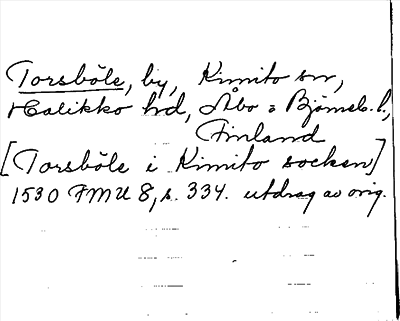 Torsböle, by, Kimito sn,
Halikko hd, Åbo o Björneb. l.,
Finland
[Torsböle i Kimito socken]
1530 FMU 8, s. 334. utdrag av orig.